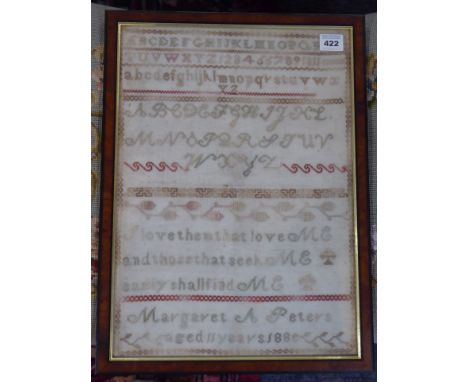 422
ABCDEFGHIJKLMNOPQR
TUVWXYZ123456789
abcdefghijklmnopqrstuvwx
YZ
ABCDEFGHIJKL
MNOPQRSTUV
WXYZ
I love them that love ME
and those that seek ME
early shall find ME
Margaret A Peters
aged 11 years